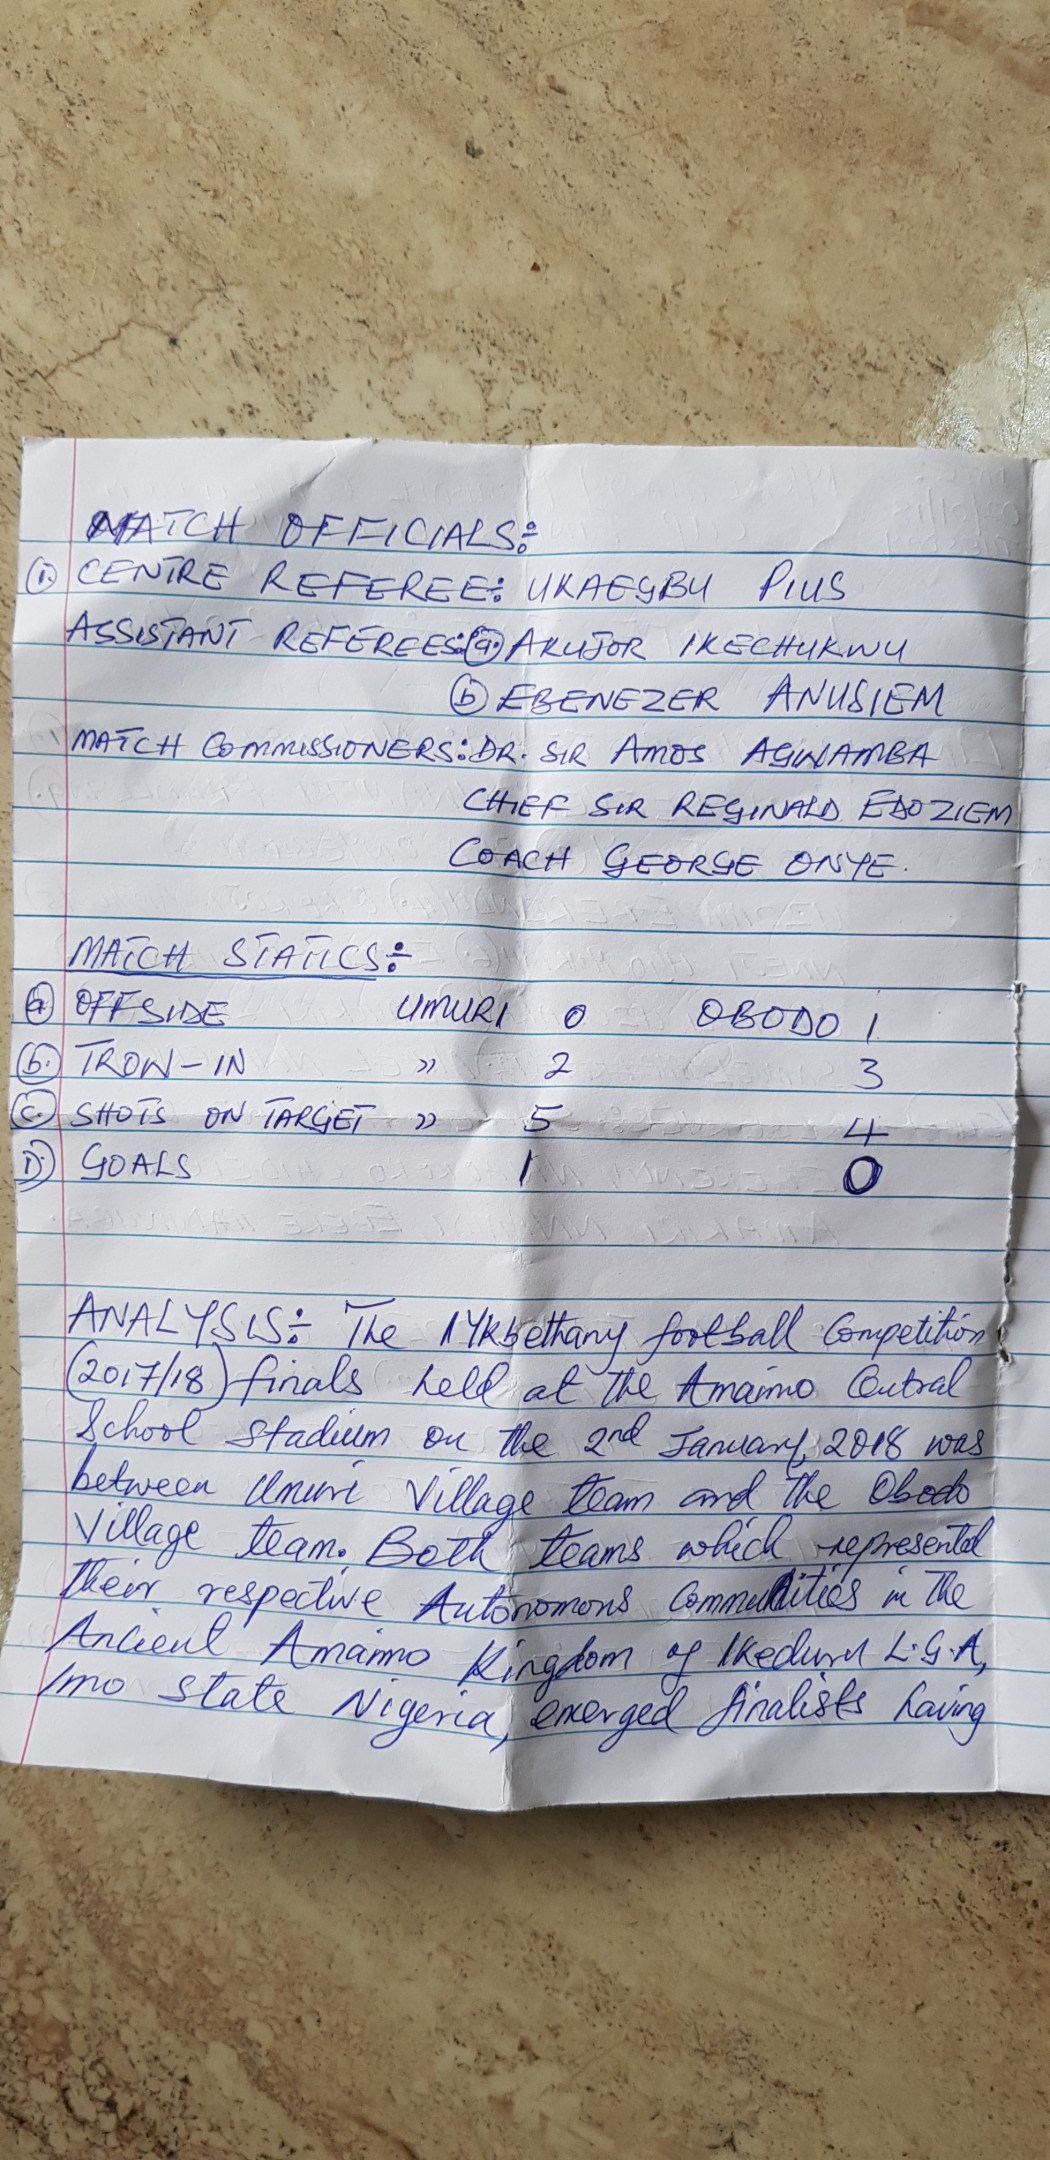 MATCH OFFICIALS:
1. CENTRE REFEREE: UKAEGBU PIUS
ASSISTANT REFEREES: a. AKUJOR IKECHUKWU
b EBENEZER ANUSIEM
MATCH COMMISSIONERS: DR. SIR AMOS AGWAMBA
CHIEF SIR REGINALD EDOZIEM
COACH GEORGE ONYE.
MATCH STATICS:
a OFFSIDE UMURI 0 OBODO 1
b. TROW-IN " 2 3
c. SHOTS ON TARGET " 5 4
D) GOALS 1 0
ANALYSIS: The football Competition
(2017/18) finals held at the Amaimo Central
School Stadium on the 2nd January, 2018 was
between Umuri Village team and the Obodo
Village team. Both teams which represented
their respective Autonomous Communities in the
Ancient Amaimo Kingdom of Ikeduru L.G.A,
Imo State Nigeria, emerged finalists having